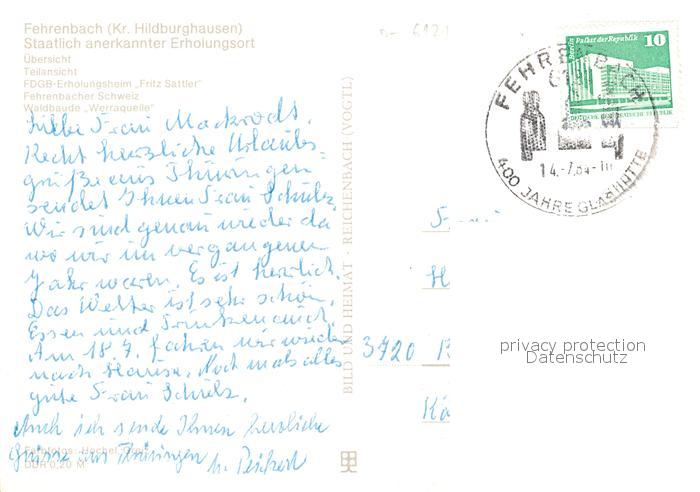 Fehrenbach (Kr. Hildburghausen)
Staatlich anerkannter Erholungsort
Übersicht
Teilansicht
FDGB-Erholungsheim „Fritz Sattler"
Fehrenbacher Schweiz
Waldbaude „Werraquelle"
Liebe Frau
Recht herzliche Urlaubs-
grüße aus Thüringen
sendet Ihnen Frau Schulz,
Wir sind genau wieder da
wo wir im vergangenen
Jahr waren. Es ist herrlich.
Das Wetter ist sehr schön,
Essen und Trinken auch.
Am 18.7. fahren wir wieder
nach Hause. Noch mals alles
gute Frau Schulz.
Auch ich sende Ihnen herzliche
Grüsse aus Thüringen
DDR 0,20 M
BILD UND HEIMAT · REICHENBACH (VOGTL)
Palast der Republik
10
DEUTSCHE DEMOKRATISCHE REPUBLIK
FEHRENBACH
14.-7.84
400 JAHRE GLASHÜTTE
privacy protection
Datenschutz